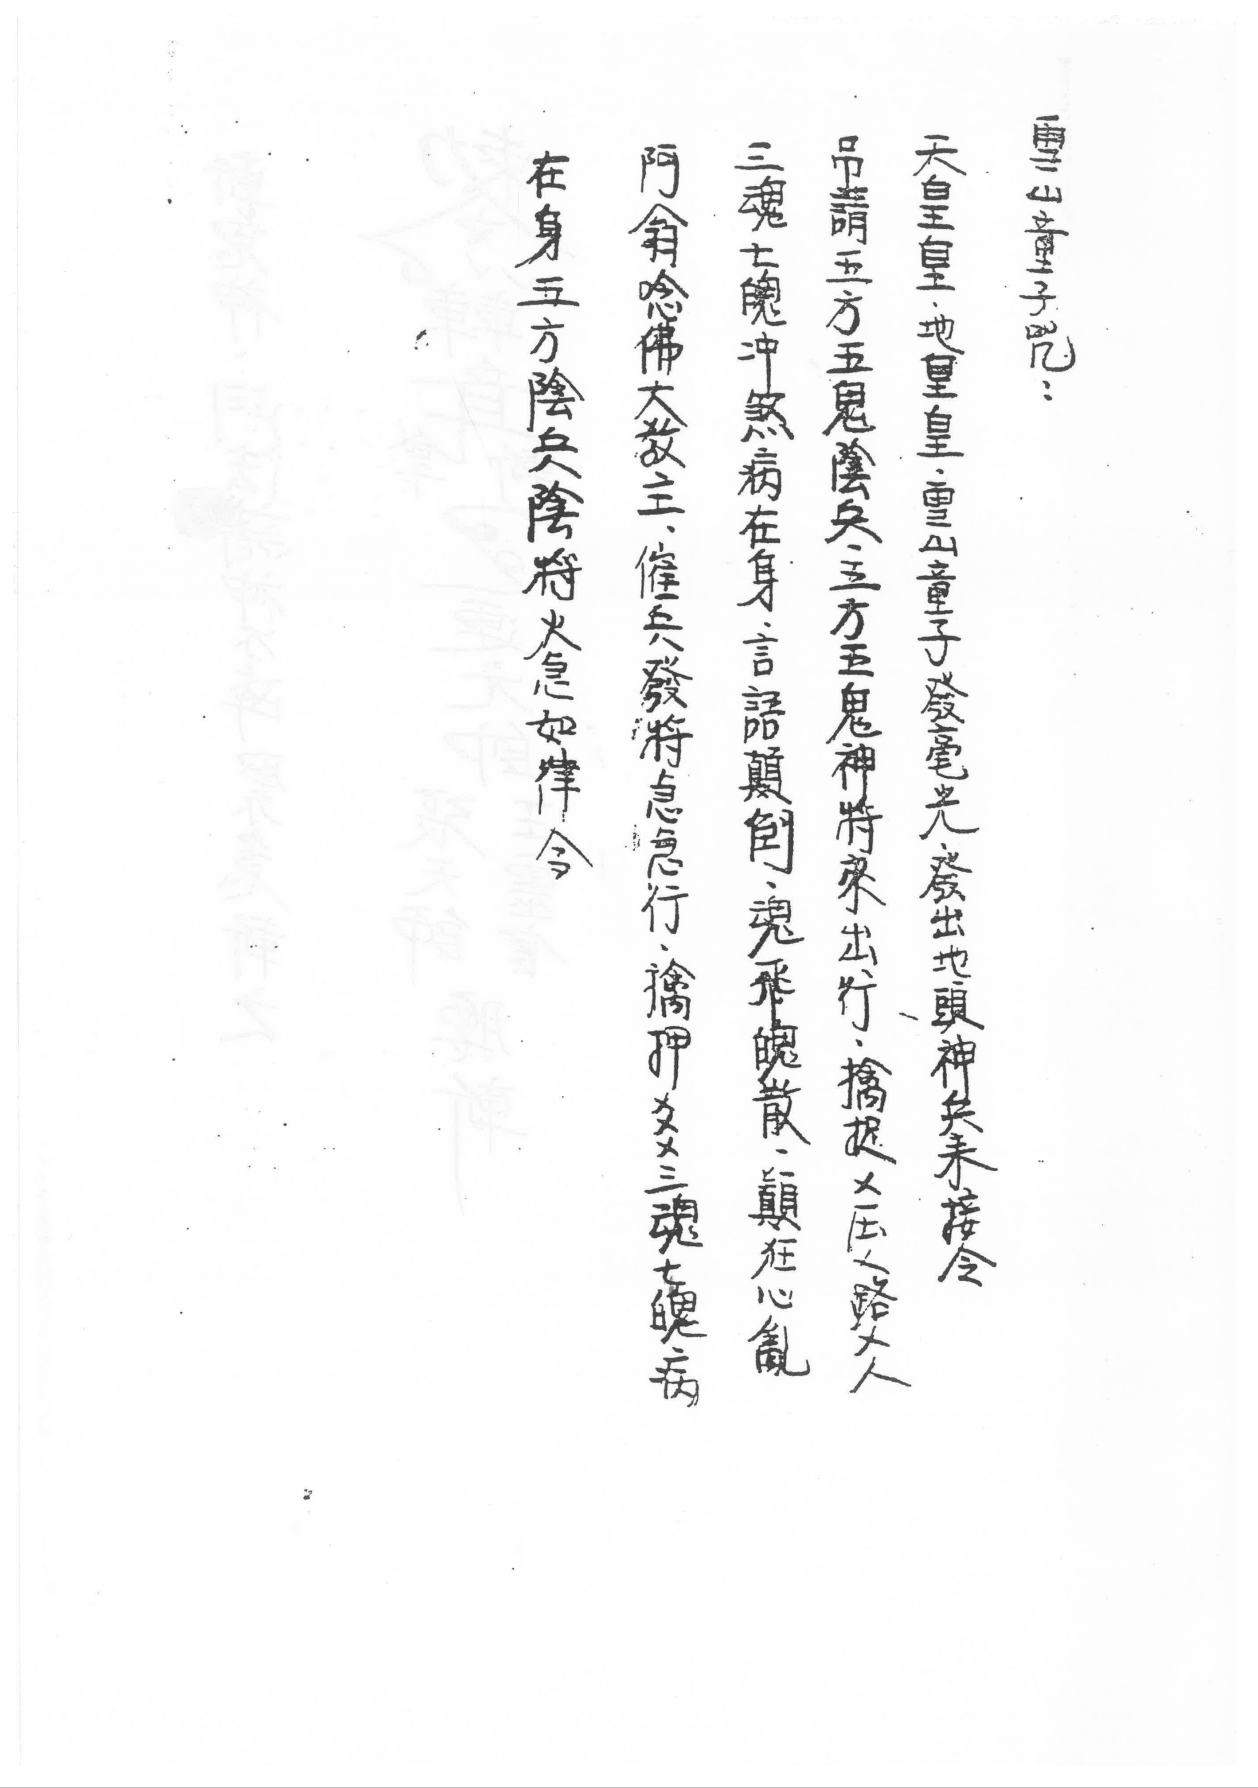 雪山童子咒：
天皇皇、地皇皇、雪山童子發毫光、發出地頭神兵来接令
吊請五方五鬼陰兵、五方五鬼神将來出行、擒捉乂压乂路乂人
三魂七魄冲煞病在身、言語顛倒、魂飛魄散、顛狂心亂
阿翁唸佛大教主、催兵發将急急行、擒押乂乂三魂七魄病
在身五方陰兵陰将火急如律令